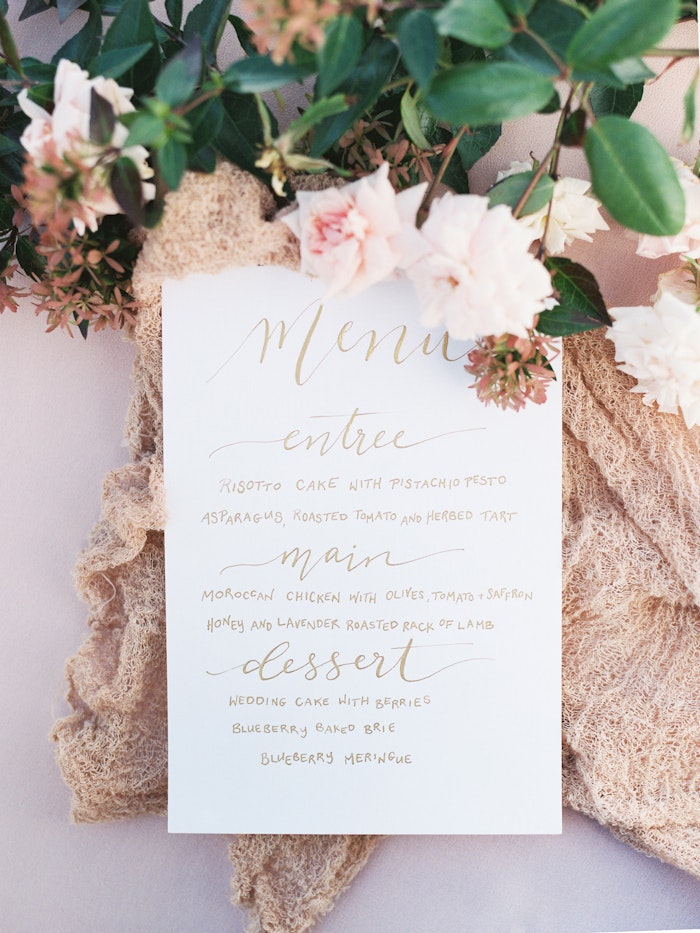 Menu
entree
RISOTTO CAKE WITH PISTACHIO PESTO
ASPARAGUS, ROASTED TOMATO AND HERBED TART
main
MOROCCAN CHICKEN WITH OLIVES, TOMATO + SAFFRON
HONEY AND LAVENDER ROASTED RACK OF LAMB
dessert
WEDDING CAKE WITH BERRIES
BLUEBERRY BAKED BRIE
BLUEBERRY MERINGUE